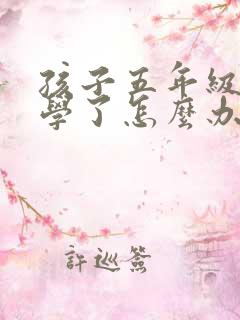 孩子五年級
學了怎麼办
許巡簽